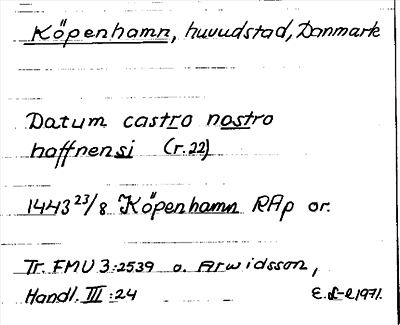 Köpenhamn, huvudstad, Danmark
Datum castro nostro
haffnensi (r. 22)
1443 23/8 Köpenhamn RAp or.
Tr. FMU 3:2539 o. Arwidsson,
Handl. III:24 E. S-l 1971.